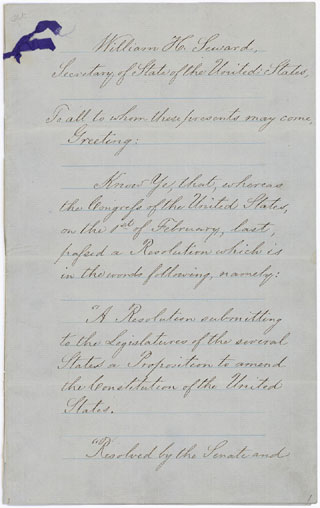 William H. Seward,
Secretary of State of the United States,
To all to whom these presents may come,
Greeting:
Know Ye, that, whereas
the Congress of the United States,
on the 1st of February, last,
passed a Resolution which is
in the words following, namely:
"A Resolution submitting
to the Legislatures of the several
States a Proposition to amend
the Constitution of the United
States.
"Resolved by the Senate and